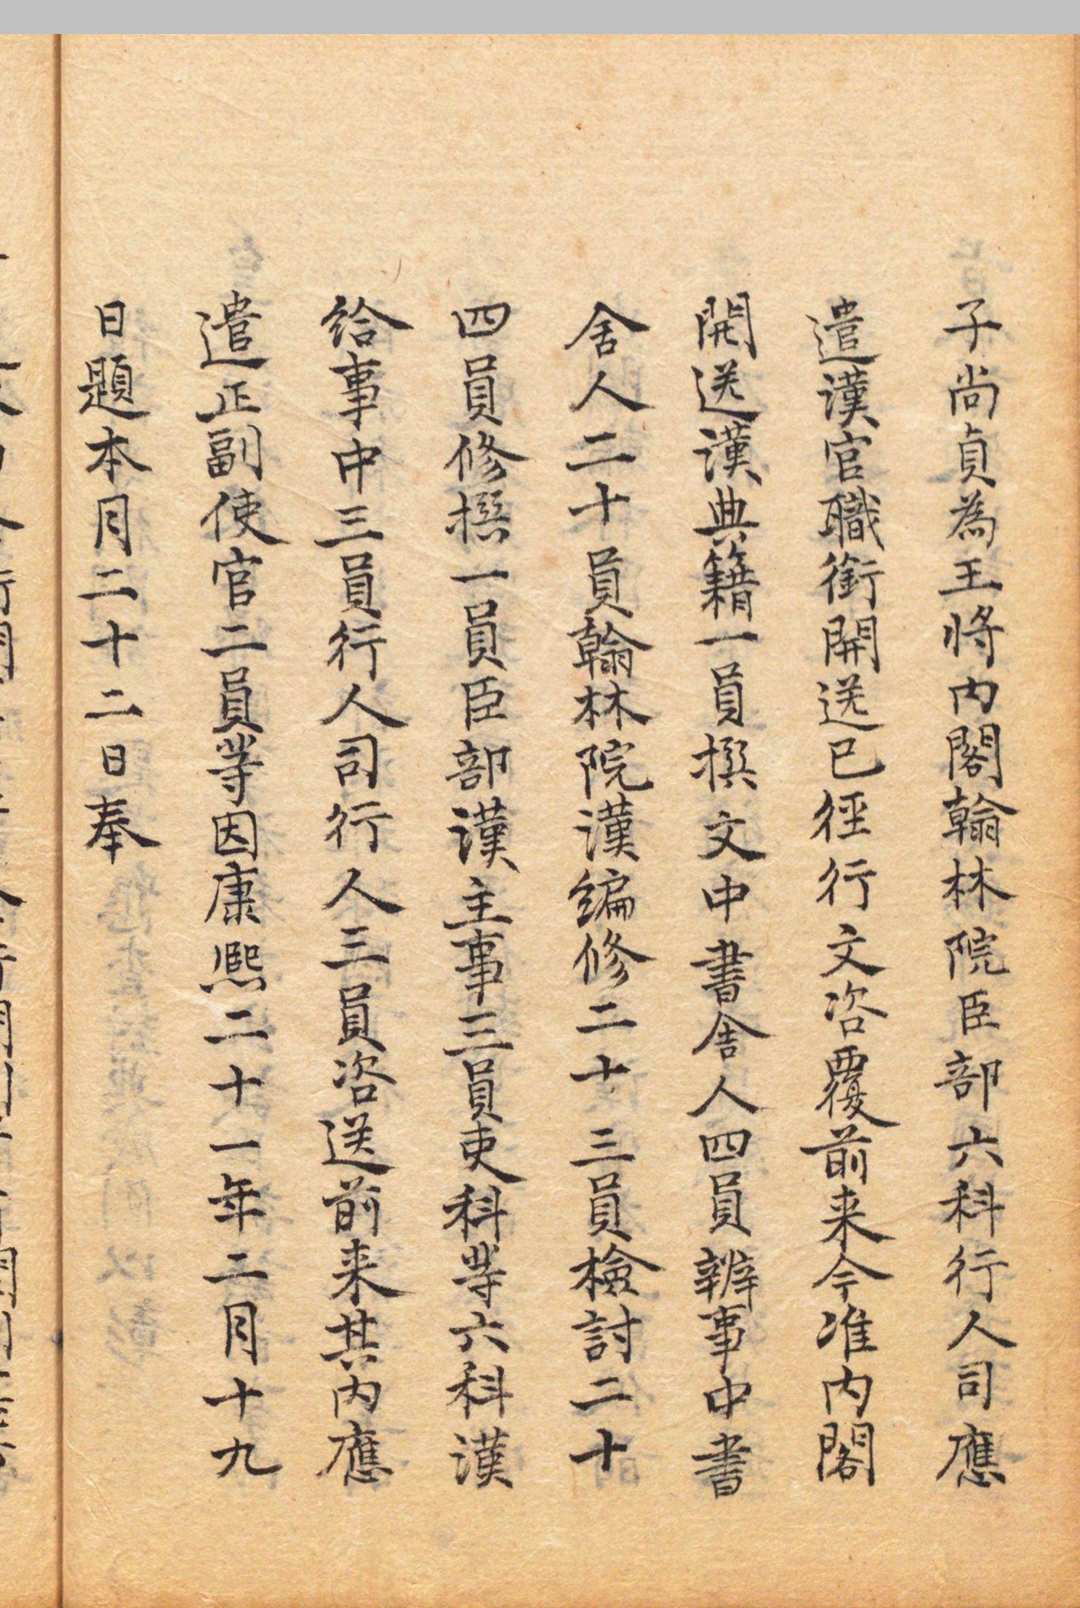 子尚貞為王將内閣翰林院臣部六科行人司應
遣漢官職銜開送已徑行文咨覆前来今准内閣
開送漢典籍一員撰文中書舎人四員辦事中書
舎人二十員翰林院漢編修二十三員檢討二十
四員修撰一員臣部漢主事三員吏科等六科漢
給事中三員行人司行人三員咨送前来其内應
遣正副使官二員等因康熙二十一年二月十九
日題本月二十二日奉